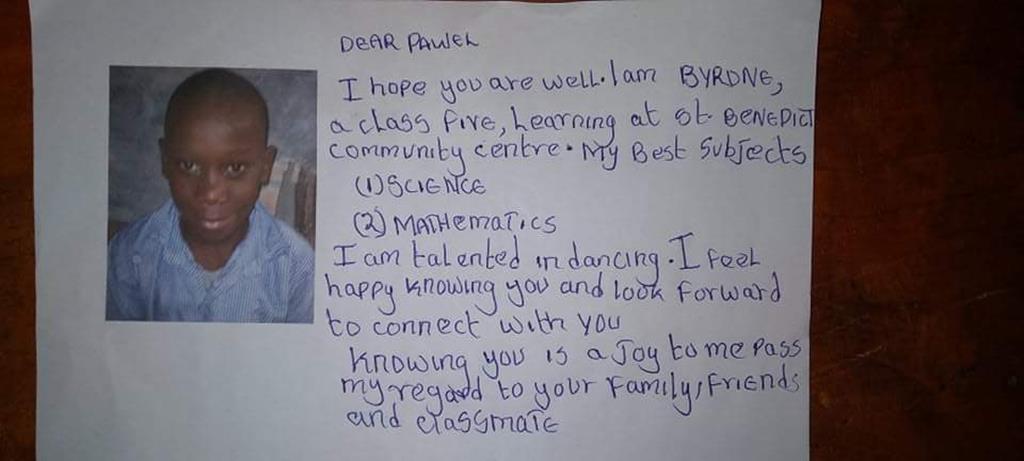 DEAR PAWEL
I hope you are well. I am BYRONE,
a class five, Learning at St. BENEDICT
community centre. My Best Subjects
(1) SCIENCE
(2) MATHematics
I am talented in dancing. I feel
happy knowing you and look forward
to connect with you
knowing you is a Joy to me Pass
my regard to your Family, Friends
and classmate